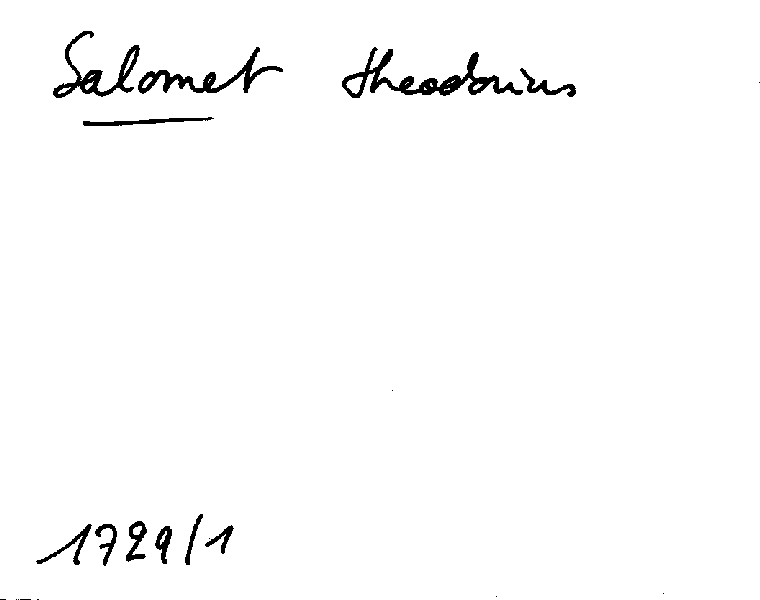 Salomet theodorius
1729/1